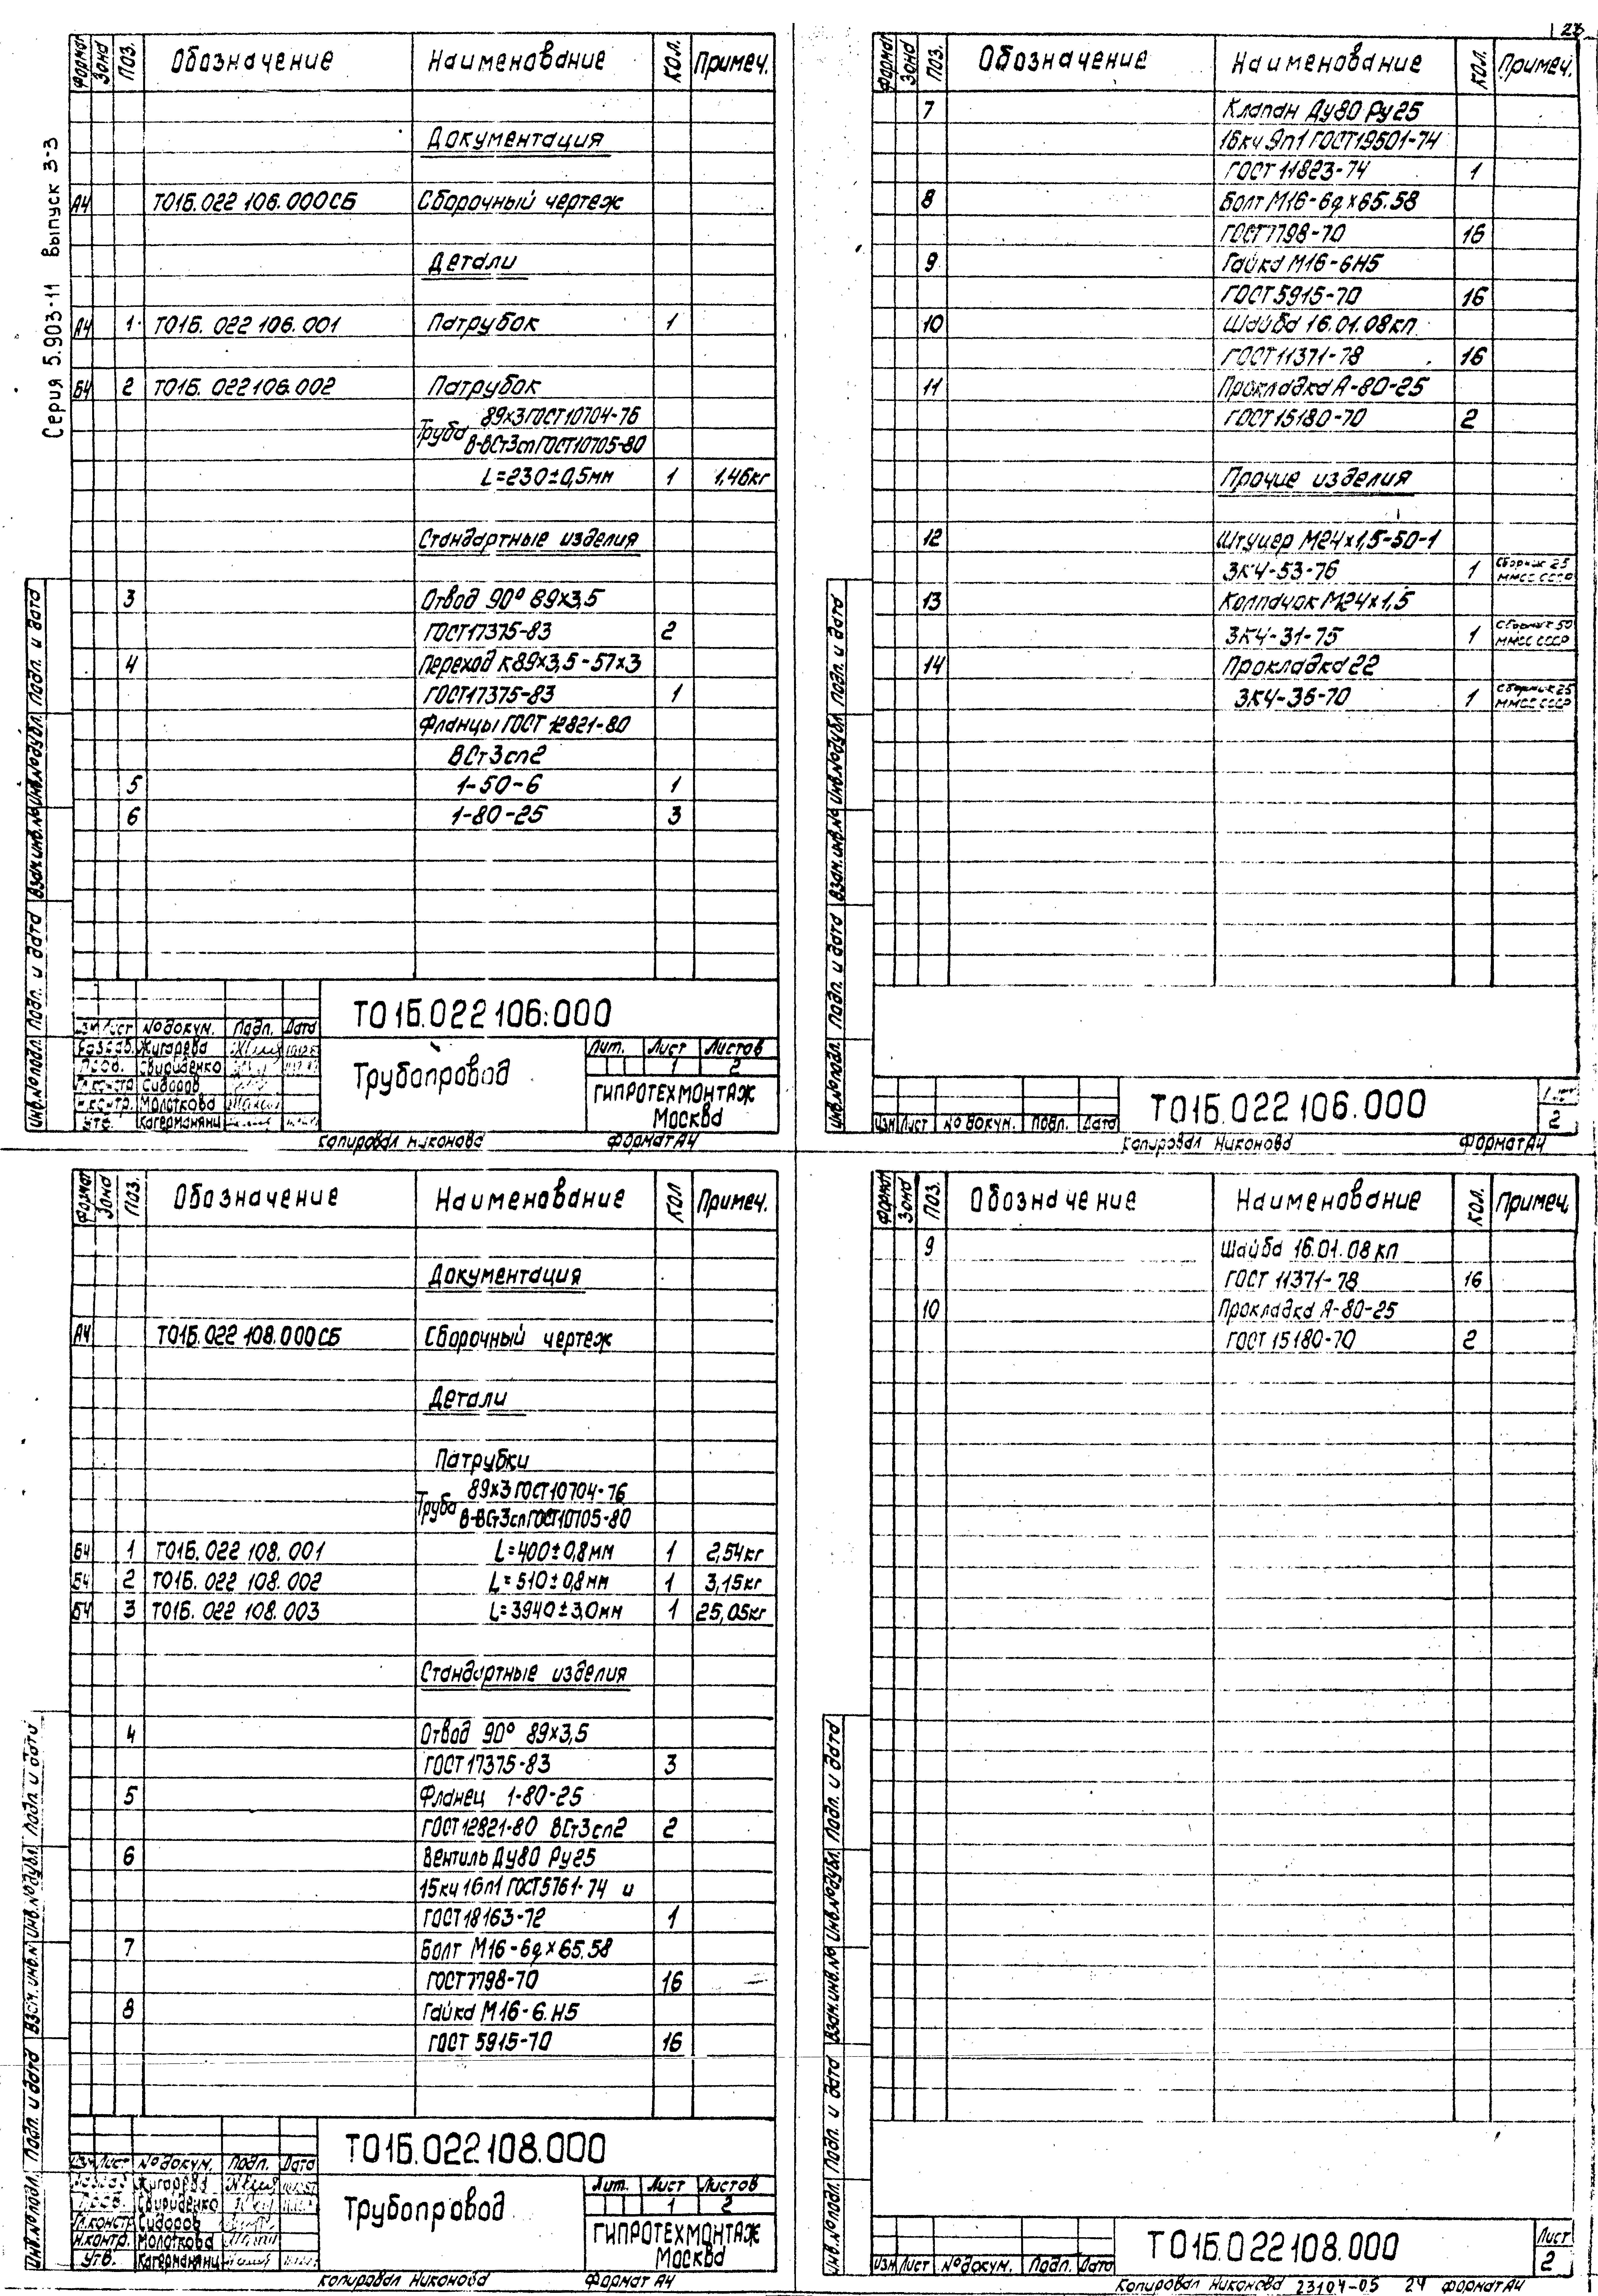 23
Серия 5.903-11 Выпуск 3-3
Формат Зона Поз. Обозначение Наименование Кол. Примеч.
Документация
А4 Т01Б.022 106.000СБ Сборочный чертеж
Детали
А4 1 Т01Б. 022 106.001 Патрубок 1
Б4 2 Т01Б. 022106.002 Патрубок
Труба 89х3 ГОСТ10704-76
В-ВСт3сп ГОСТ10705-80
L=230±0,5мм 1 1,46кг
Стандартные изделия
3 Отвод 90° 89х3,5
ГОСТ17375-83 2
4 Переход К89х3,5-57х3
ГОСТ17375-83 1
Фланцы ГОСТ 12821-80
ВСт3сп2
5 1-50-6 1
6 1-80-25 3
Инв.№подл. Подп. и дата Взам.инв.№ Инв.№дубл. Подп. и дата
Т01Б.022 106.000
Изм Лист №докум. Подп. Дата
Разраб. Жигарева
Пров. Свириденко
Гл.констр Сидоров
Н.контр. Молоткова
Утв. Кагерманянц
Трубопровод
Лит. Лист Листов
1 2
ГИПРОТЕХМОНТАЖ
Москва
Копировал Никонова Формат А4
Формат Зона Поз. Обозначение Наименование Кол. Примеч.
7 Клапан Ду80 Ру25
16кч 9п1 ГОСТ19501-74
ГОСТ 11823-74 1
8 Болт М16-6gх65.58
ГОСТ7798-70 16
9 Гайка М16-6Н5
ГОСТ5915-70 16
10 Шайба 16.01.08кп
ГОСТ11371-78 16
11 Прокладка А-80-25
ГОСТ15180-70 2
Прочие изделия
12 Штуцер М24х1,5-50-1
ЗК4-53-76 1 Сборник 25
ММСС СССР
13 Колпачок М24х1,5
ЗК4-31-75 1 Сборник 50
ММСС СССР
14 Прокладка 22
ЗК4-36-70 1 Сборник 25
ММСС СССР
Инв.№подл. Подп. и дата Взам.инв.№ Инв.№дубл. Подп. и дата
Изм Лист №докум. Подп. Дата
Т01Б.022 106.000
Лист
2
Копировал Никонова Формат А4
Формат Зона Поз. Обозначение Наименование Кол Примеч.
Документация
А4 Т01Б.022 108.000СБ Сборочный чертеж
Детали
Патрубки
Труба 89х3 ГОСТ10704-76
В-ВСт3сп ГОСТ10705-80
Б4 1 Т01Б. 022 108.001 L=400±0,8мм 1 2,54кг
Б4 2 Т01Б. 022 108.002 L=510±0,8мм 1 3,15кг
Б4 3 Т01Б. 022 108.003 L=3940±3,0мм 1 25,05кг
Стандартные изделия
4 Отвод 90° 89х3,5
ГОСТ17375-83 3
5 Фланец 1-80-25
ГОСТ12821-80 ВСт3сп2 2
6 Вентиль Ду80 Ру25
15кч 16п1 ГОСТ5761-74 и
ГОСТ18163-72 1
7 Болт М16-6gх65.58
ГОСТ7798-70 16
8 Гайка М16-6.Н5
ГОСТ 5915-70 16
Инв.№подл. Подп. и дата Взам.инв.№ Инв.№дубл. Подп. и дата
Т01Б.022108.000
Изм Лист №докум. Подп. Дата
Разраб Жигарева
Пров. Свириденко
Гл.констр Сидоров
Н.контр. Молоткова
Утв. Кагерманянц
Трубопровод
Лит. Лист Листов
1 2
ГИПРОТЕХМОНТАЖ
Москва
Копировал Никонова Формат А4
Формат Зона Поз. Обозначение Наименование Кол. Примеч.
9 Шайба 16.01.08 кп
ГОСТ 11371-78 16
10 Прокладка А-80-25
ГОСТ 15180-70 2
Инв.№подл. Подп. и дата Взам.инв.№ Инв.№дубл. Подп. и дата
Изм Лист №докум. Подп. Дата
Т01Б.022108.000
Лист
2
Копировал Никонова 23104-05 24 Формат А4